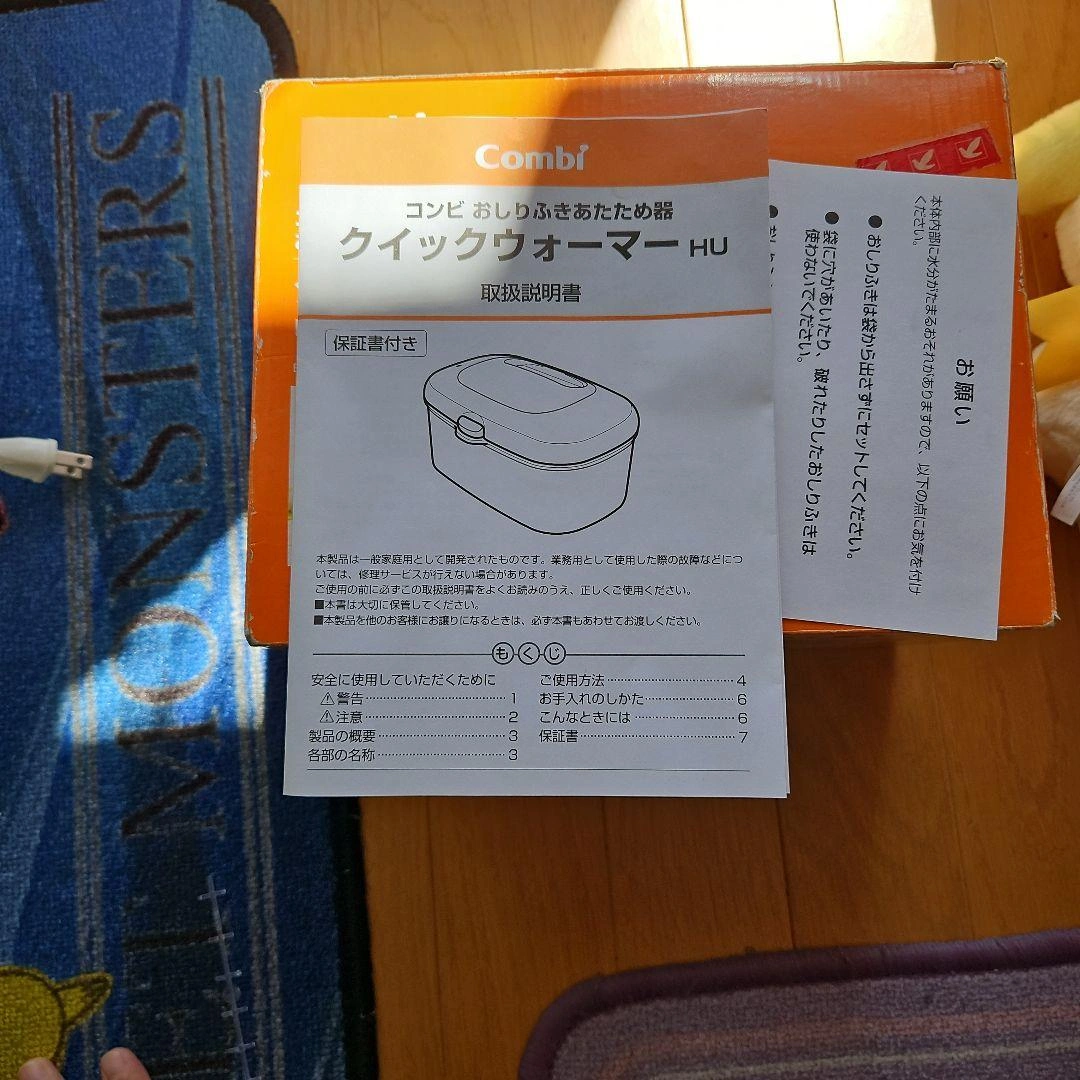 Combi
コンビ おしりふきあたため器
クイックウォーマー HU
取扱説明書
保証書付き
本製品は一般家庭用として開発されたものです。業務用として使用した際の故障などにつ
いては、修理サービスが行えない場合があります。
ご使用の前に必ずこの取扱説明書をよくお読みのうえ、正しくご使用ください。
■本書は大切に保管してください。
■本製品を他のお客様にお譲りになるときは、必ず本書もあわせてお渡しください。
もくじ
安全に使用していただくために
⚠警告 1
⚠注意 2
製品の概要 3
各部の名称 3
ご使用方法 4
お手入れのしかた 6
こんなときには 6
保証書 7
お願い
本体内部に水分がたまるおそれがありますので、以下の点にお気を付け
ください。
● おしりふきは袋から出さずにセットしてください。
● 袋に穴があいたり、破れたりしたおしりふきは
使わないでください。
MONSTERS